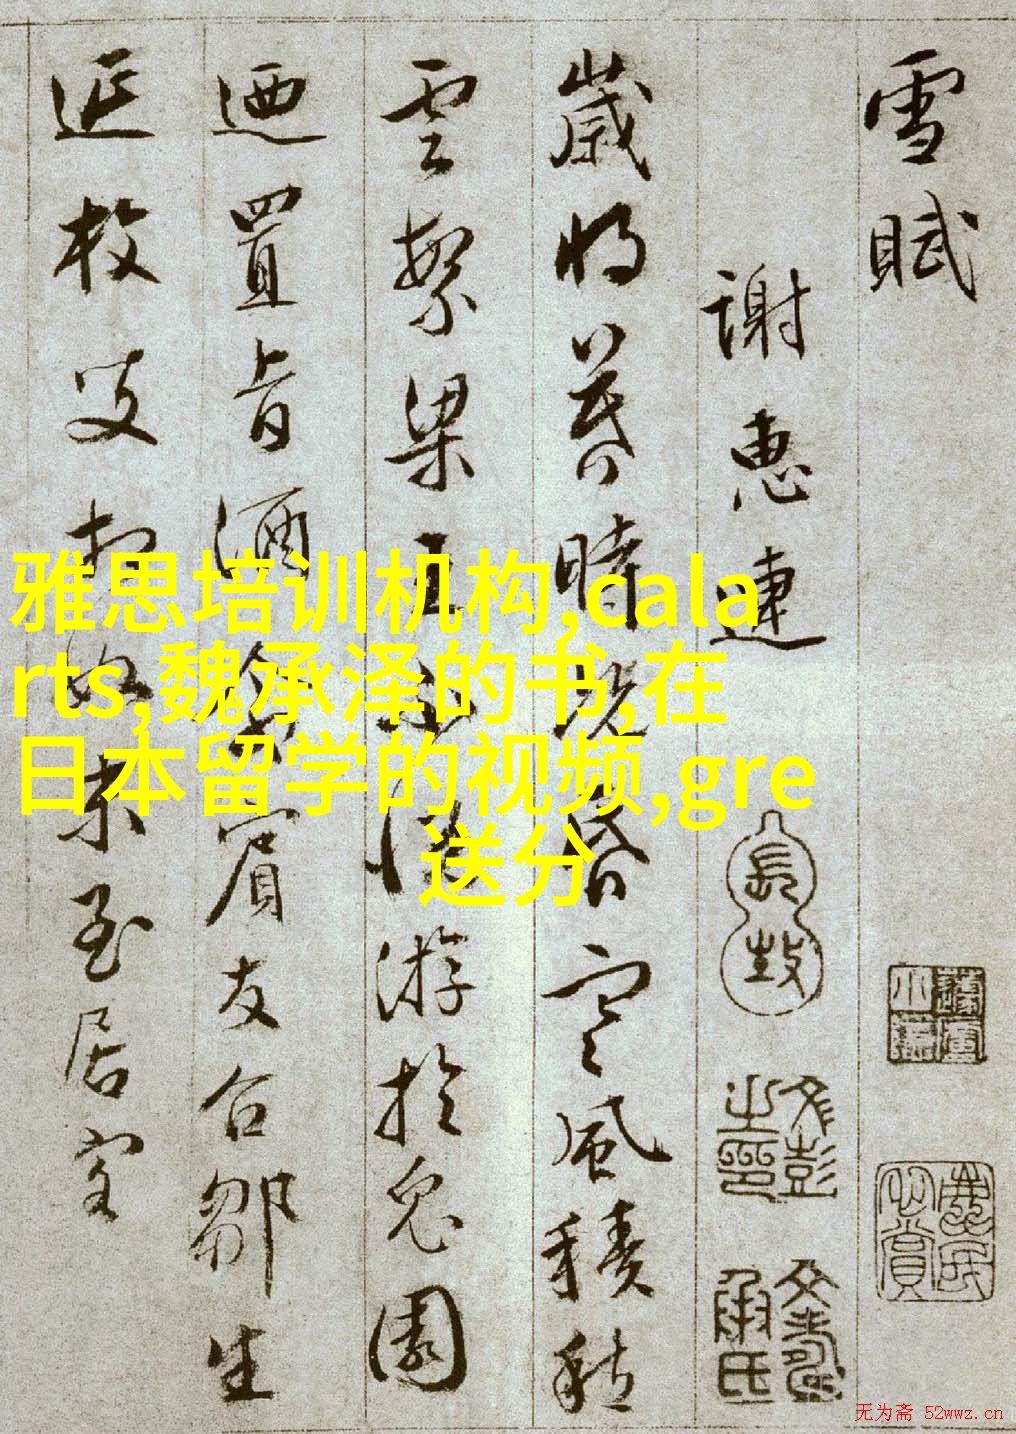 雪賦
謝惠連
歲将暮時既昏寒風積愁
雲繁梁王不悅游於兔園
迺置旨酒命賓友召鄒生
延枚叟相如末至居客
雅思培训机构,cala
rts,魏承泽的书,在
日本留学的视频,gre
送分
文彭之印
文壽承氏
无为斋 52wwz.cn